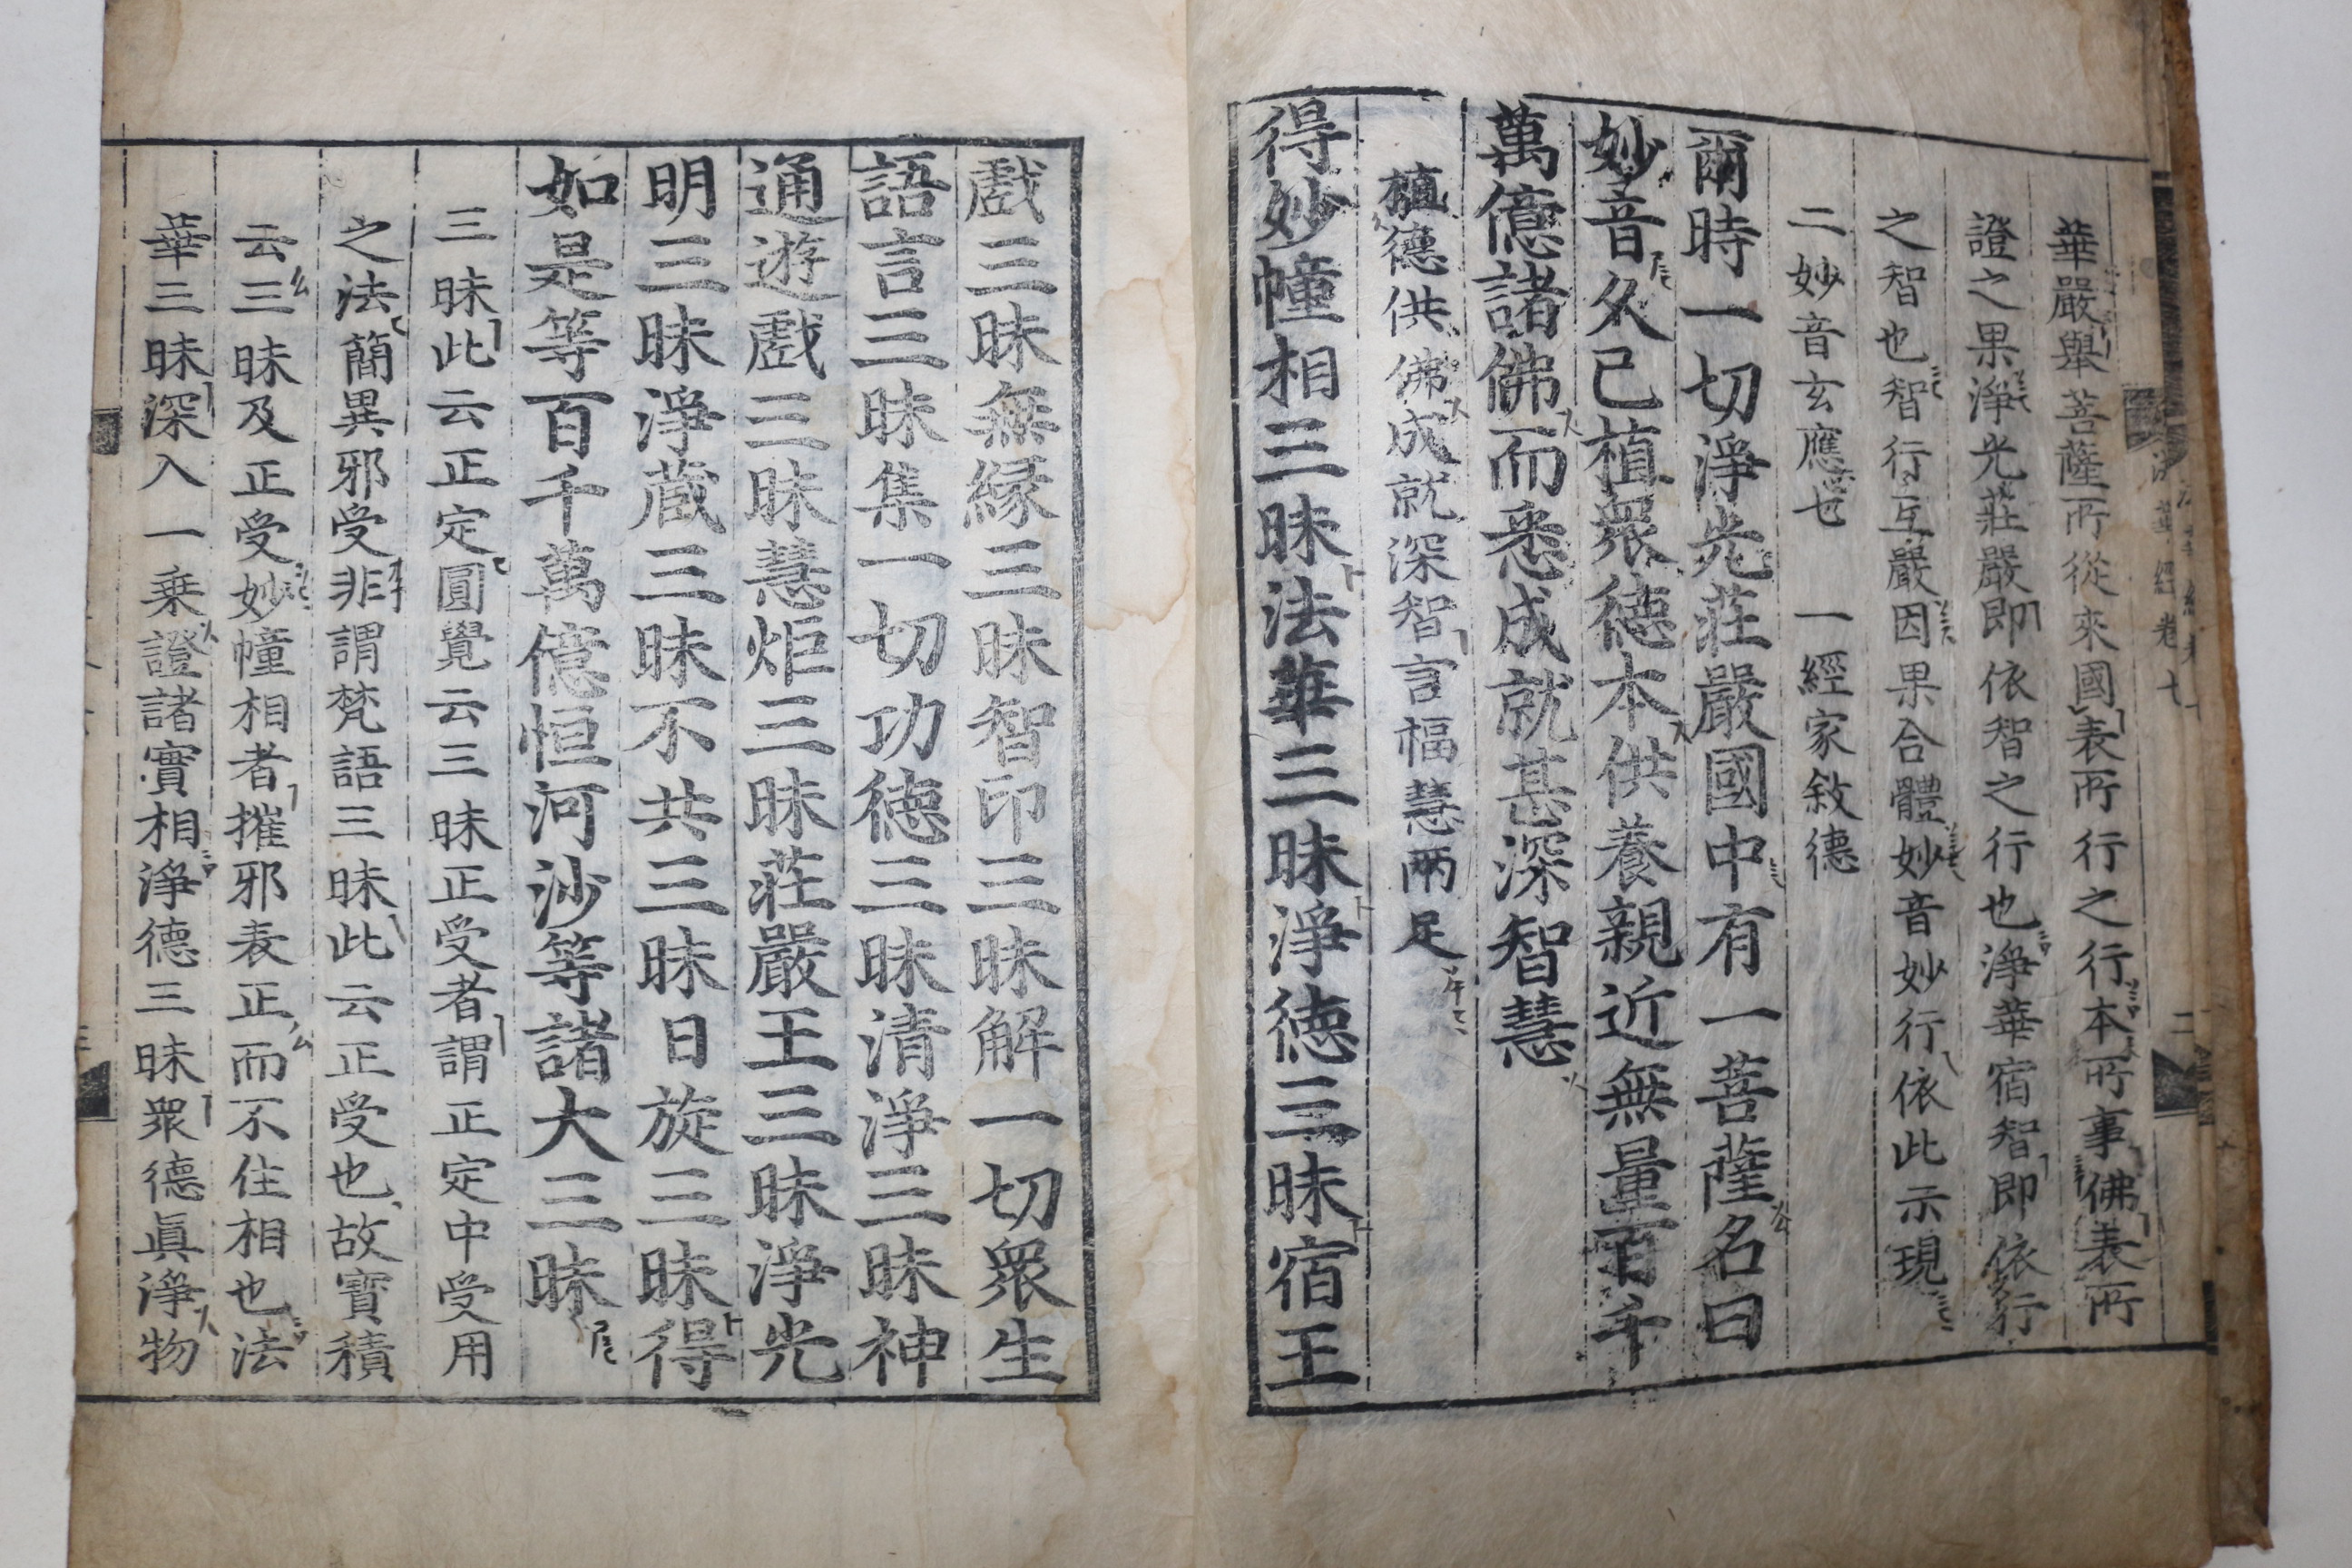 華嚴舉菩薩所從來國表所行之行本所事佛表所
證之果淨光莊嚴即依智之行也淨華宿智即依行
之智也智行互嚴因果合體妙音妙行依此示現
二妙音玄應也 一經家敘德
爾時一切淨光莊嚴國中有一菩薩名曰
妙音久已植眾德本供養親近無量百千
萬億諸佛而悉成就甚深智慧
植德供佛成就深智言福慧兩足
得妙幢相三昧法華三昧淨德三昧宿王
戲三昧無緣三昧智印三昧解一切眾生
語言三昧集一切功德三昧清淨三昧神
通遊戲三昧慧炬三昧莊嚴王三昧淨光
明三昧淨藏三昧不共三昧日旋三昧得
如是等百千萬億恒河沙等諸大三昧
三昧此云正定圓覺云三昧正受者謂正定中受用
之法簡異邪受非謂梵語三昧此云正受也故寶積
云三昧及正受妙幢相者摧邪表正而不住相也法
華三昧深入一乘證諸實相淨德三昧眾德眞淨物